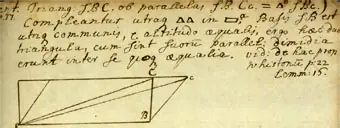 Triang. S.B.C. ob parallelas S.B. Cc. = Δ S.B.c.)
Compleantur utraq ΔΔ in Basis S.B. est
utriq communis, & altitudo æqualis, ergo hæc duo
triangula, cum sint suorũ parallel: dimidia
erunt inter se quoq æqualia. vid: de hac prop.
p. 22
Lemm: 16.
C c
B